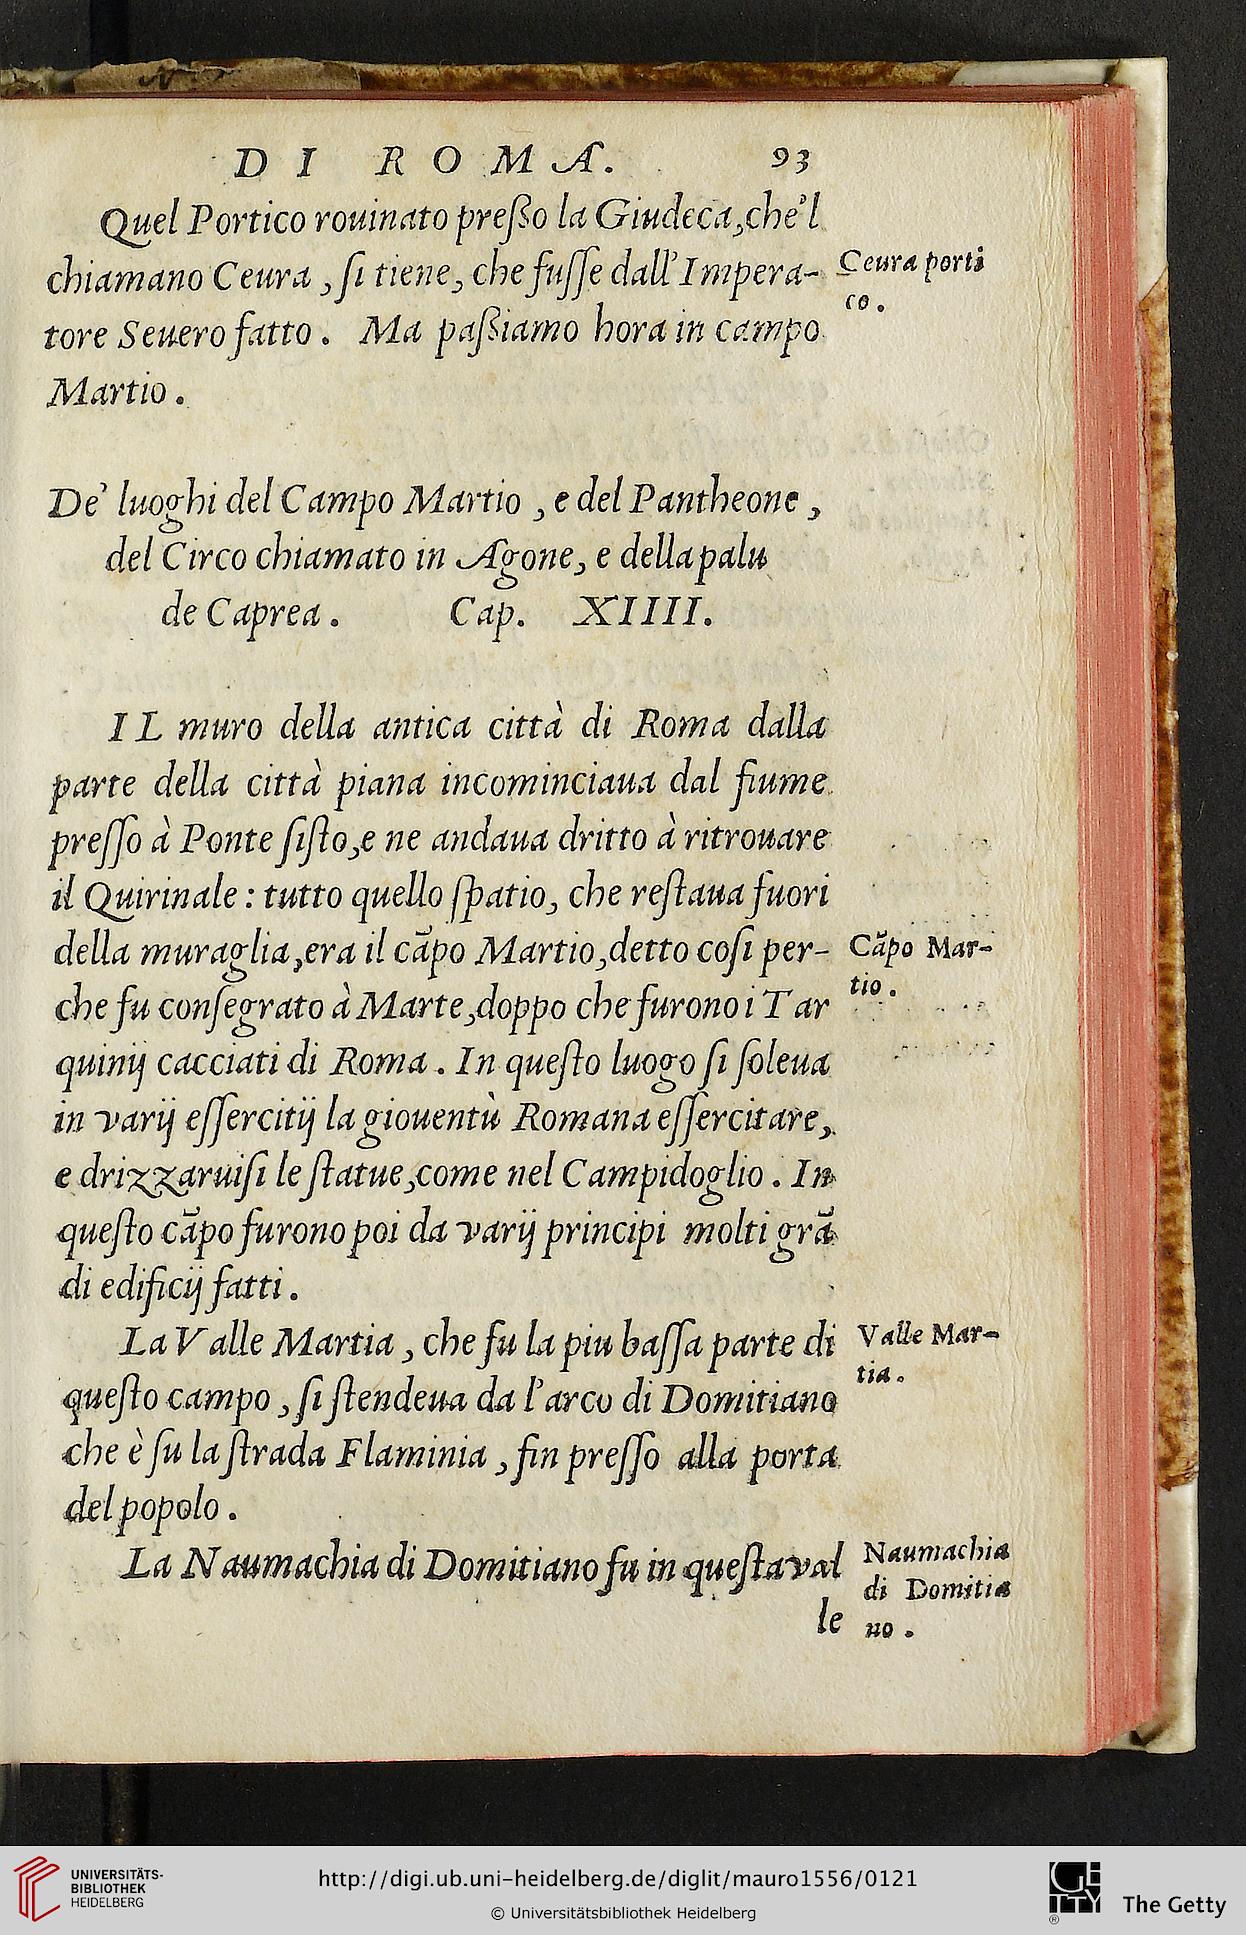 DI ROMA. 93
Quel Portico rouinato preßo la Giudeca,che'l
chiamano Ceura, ſi tiene, che fuſſe dall'Impera-
tore Seuero fatto. Ma paßiamo hora in campo
Martio.
Ceura porti
co.
De' luoghi del Campo Martio, e del Pantheone,
del Circo chiamato in Agone, e della palu
de Caprea. Cap. XIIII.
IL muro della antica città di Roma dalla
parte della città piana incominciaua dal fiume
preſſo à Ponte ſiſto,e ne andaua dritto à ritrouare
il Quirinale: tutto quello ſpatio, che reſtaua fuori
della muraglia,era il cāpo Martio,detto coſi per-
che fu conſegrato à Marte,doppo che furono i Tar
quinij cacciati di Roma. In queſto luogo ſi ſoleua
in varij eſſercitij la giouentù Romana eſſercitare,
e drizzaruiſi le ſtatue,come nel Campidoglio. In
queſto cāpo furono poi da varij principi molti grā
di edificij fatti.
Cāpo Mar-
tio.
La Valle Martia, che fu la piu baſſa parte di
queſto campo, ſi ſtendeua da l'arco di Domitiano
che è ſu la ſtrada Flaminia, fin preſſo alla porta
del popolo.
Valle Mar-
tia.
La Naumachia di Domitiano fu in queſta val
le
Naumachia
di Domitia
no.
UNIVERSITÄTS-
BIBLIOTHEK
HEIDELBERG
http://digi.ub.uni-heidelberg.de/diglit/mauro1556/0121
© Universitätsbibliothek Heidelberg
GETTY
®
The Getty